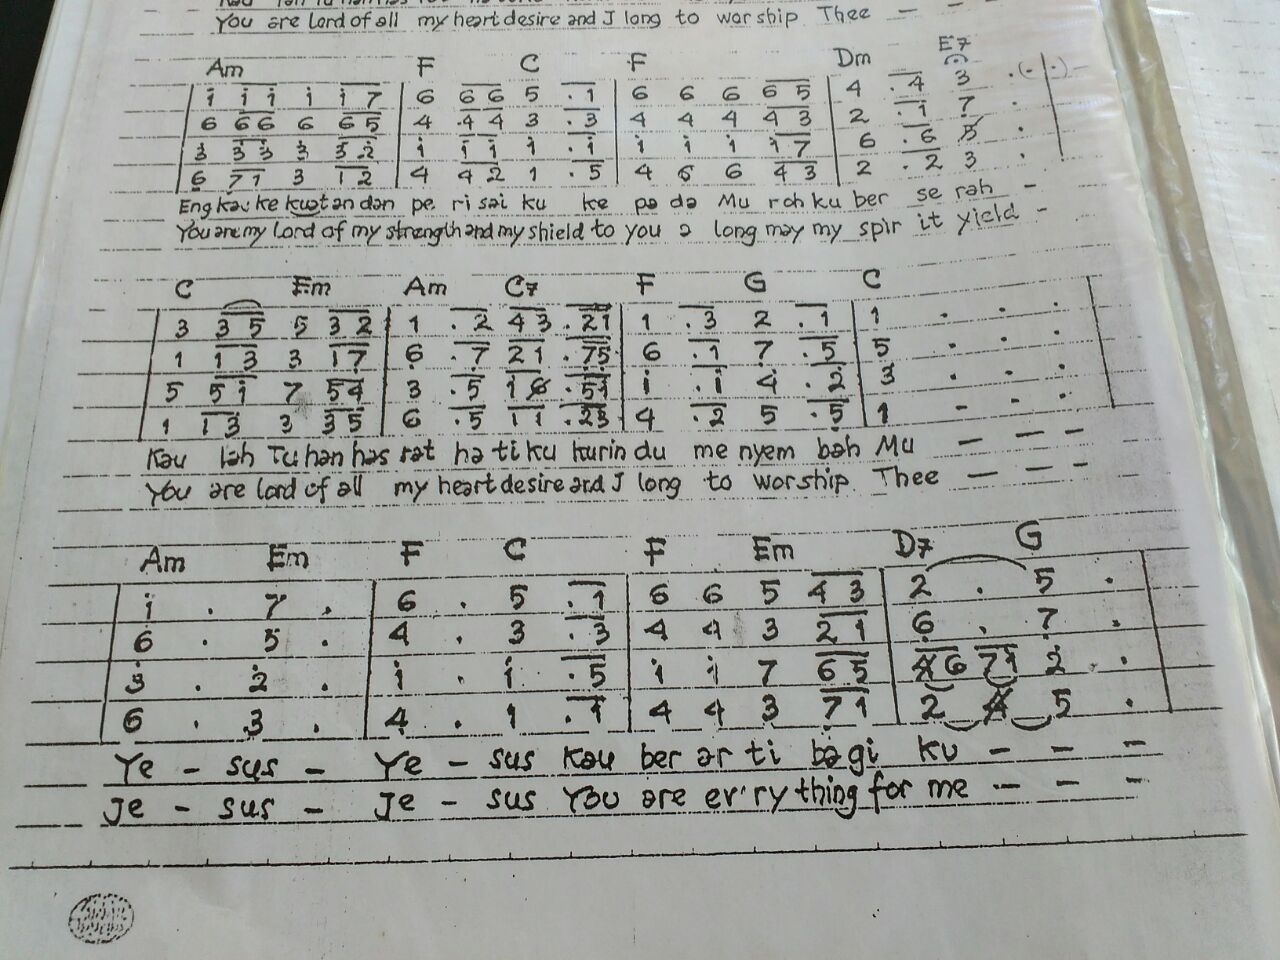 You are Lord of all my heart desire and I long to worship Thee - - -
Am F C F Dm E7
i i i i i 7 | 6 6 6 5 . 1 | 6 6 6 6 5 | 4 . 4 3 . (. .)
6 6 6 6 6 5 | 4 4 4 3 . 3 | 4 4 4 4 3 | 2 . 1 7 .
3 3 3 3 3 2 | i i i i . i | i i i i 7 | 6 . 6 5 .
6 7 1 3 1 2 | 4 4 2 1 . 5 | 4 6 6 4 3 | 2 . 2 3 .
Engkau ke kuatan dan pe ri sai ku ke pa da Mu roh ku ber se rah -
You are my Lord of my strength and my shield to you a long may my spir it yield -
C Em Am C7 F G C
3 3 5 5 3 2 | 1 . 2 4 3 . 21 | 1 . 3 2 . 1 | 1 . . .
1 1 3 3 1 7 | 6 . 7 2 1 . 75 | 6 . 1 7 . 5 | 5 . . .
5 5 i 7 5 4 | 3 . 5 1 6 . 5 | i . i 4 . 2 | 3 . . .
1 1 3 3 3 5 | 6 . 5 1 1 . 23 | 4 . 2 5 . 5 | 1 - . .
Kau lah Tuhan has rat ha ti ku kurin du me nyem bah Mu - - -
You are lord of all my heart desire and I long to worship Thee - - -
Am Em F C F Em D7 G
i . 7 . | 6 . 5 . 1 | 6 6 5 4 3 | 2 . 5 .
6 . 5 . | 4 . 3 . 3 | 4 4 3 2 1 | 6 . 7 .
3 . 2 . | i . i . 5 | i i 7 6 5 | 6 7 1 2 .
6 . 3 . | 4 . 1 . 1 | 4 4 3 7 1 | 2 5 .
Ye - sus - Ye - sus Kau ber ar ti bagi ku - - -
Je - sus - Je - sus You are ev'ry thing for me - - -